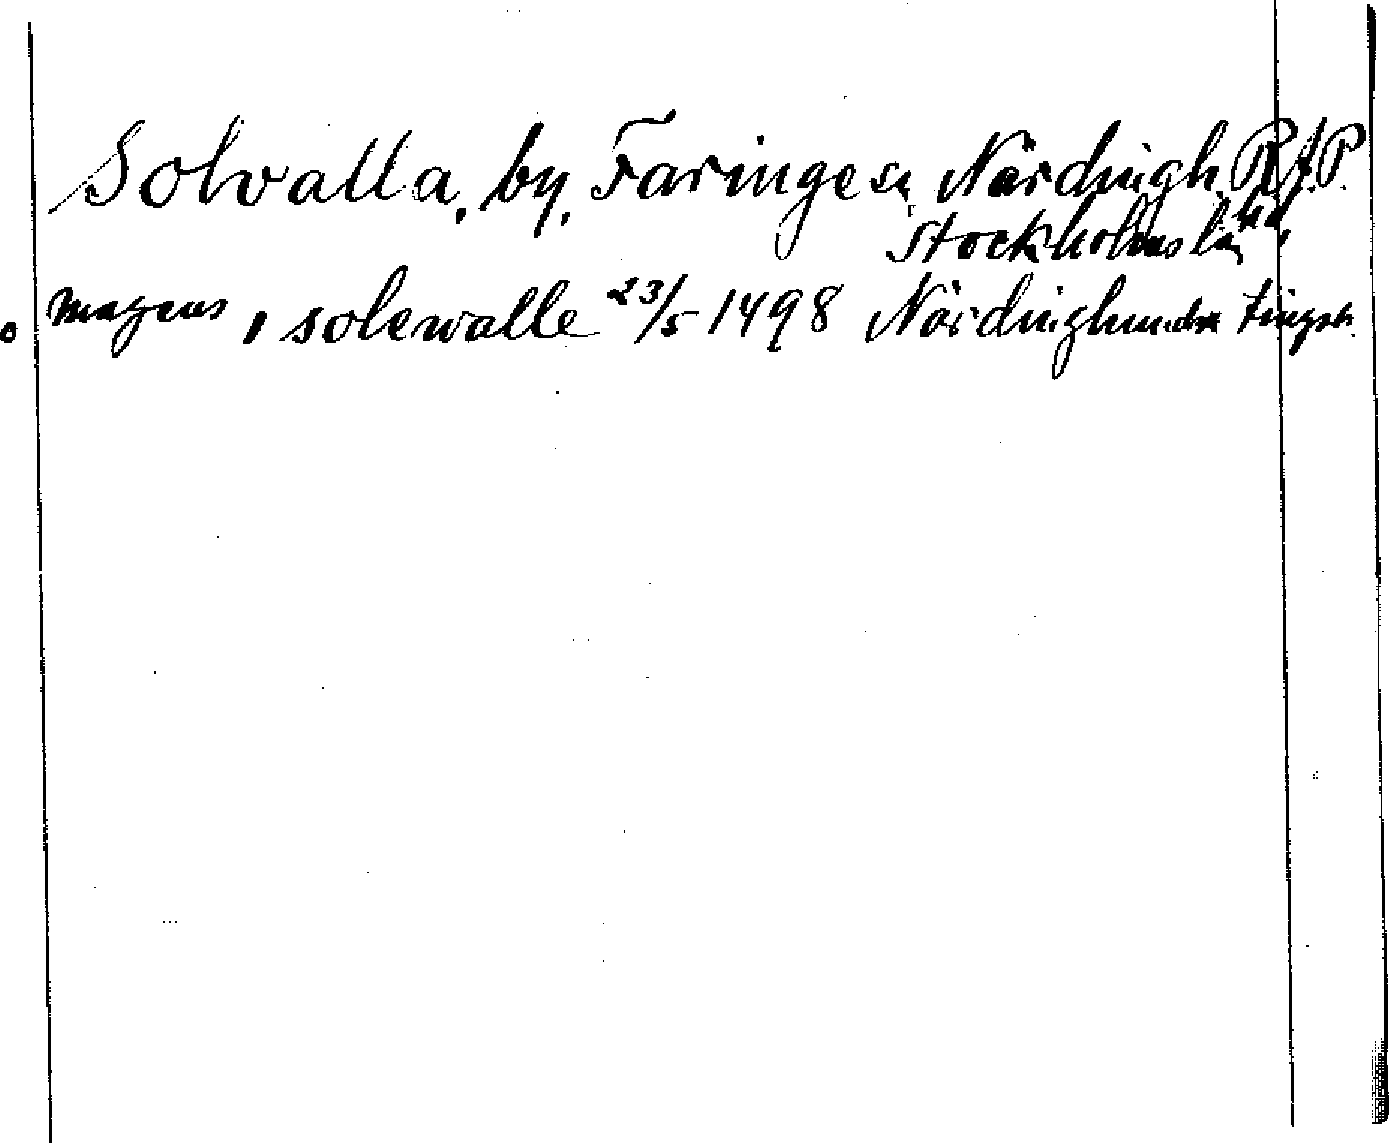 Solvalla, by, Faringe sn, Närdingh. R.A.P.
Stockholms län
o magnus i solewalle 23/5 1498 Närdinghundra tingsh.